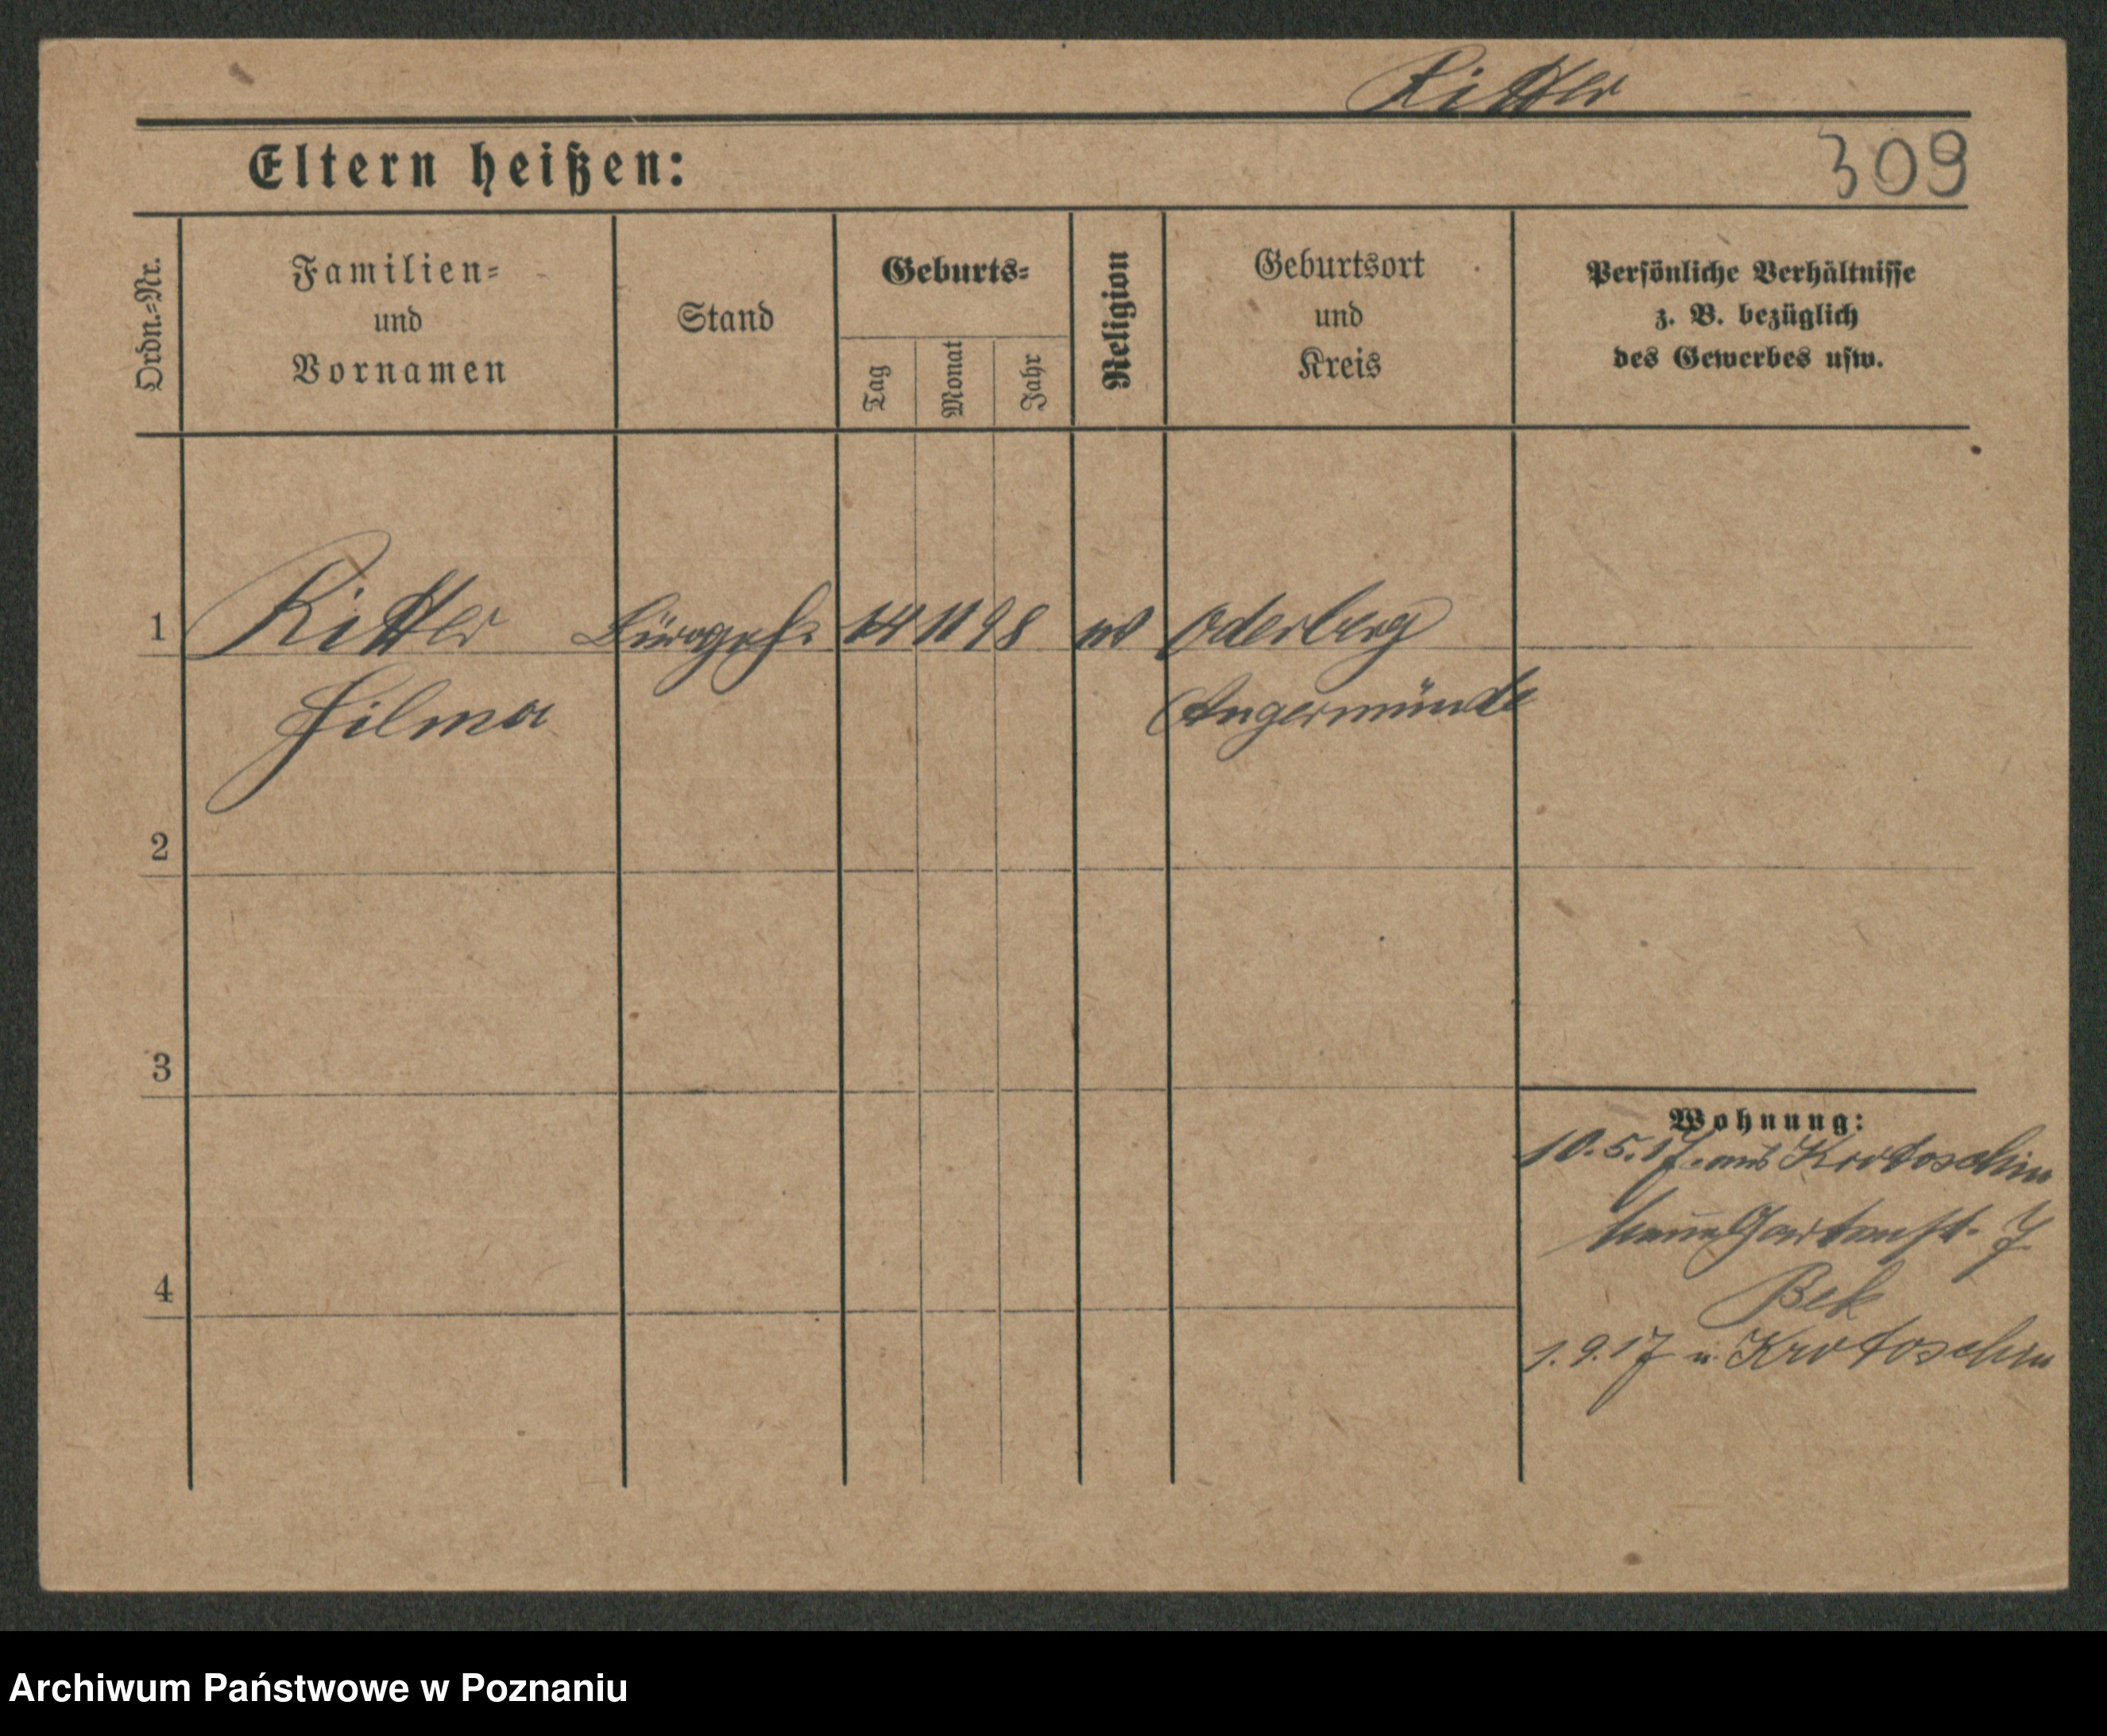 Ritter
Eltern heißen:
309
Ordn.=Nr.
Familien=
und
Vornamen
Stand
Geburts=
Tag
Monat
Jahr
Religion
Geburtsort
und
Kreis
Persönliche Verhältnisse
z. B. bezüglich
des Gewerbes usw.
1 Ritter Bürogeh. 14 11 98 Oderberg
Hilma Angermünde
2
3
Wohnung:
10.5.17. aus Krotoschin
Gartenst. 7
4
Bek
1.9.17 n. Krotoschin
Archiwum Państwowe w Poznaniu